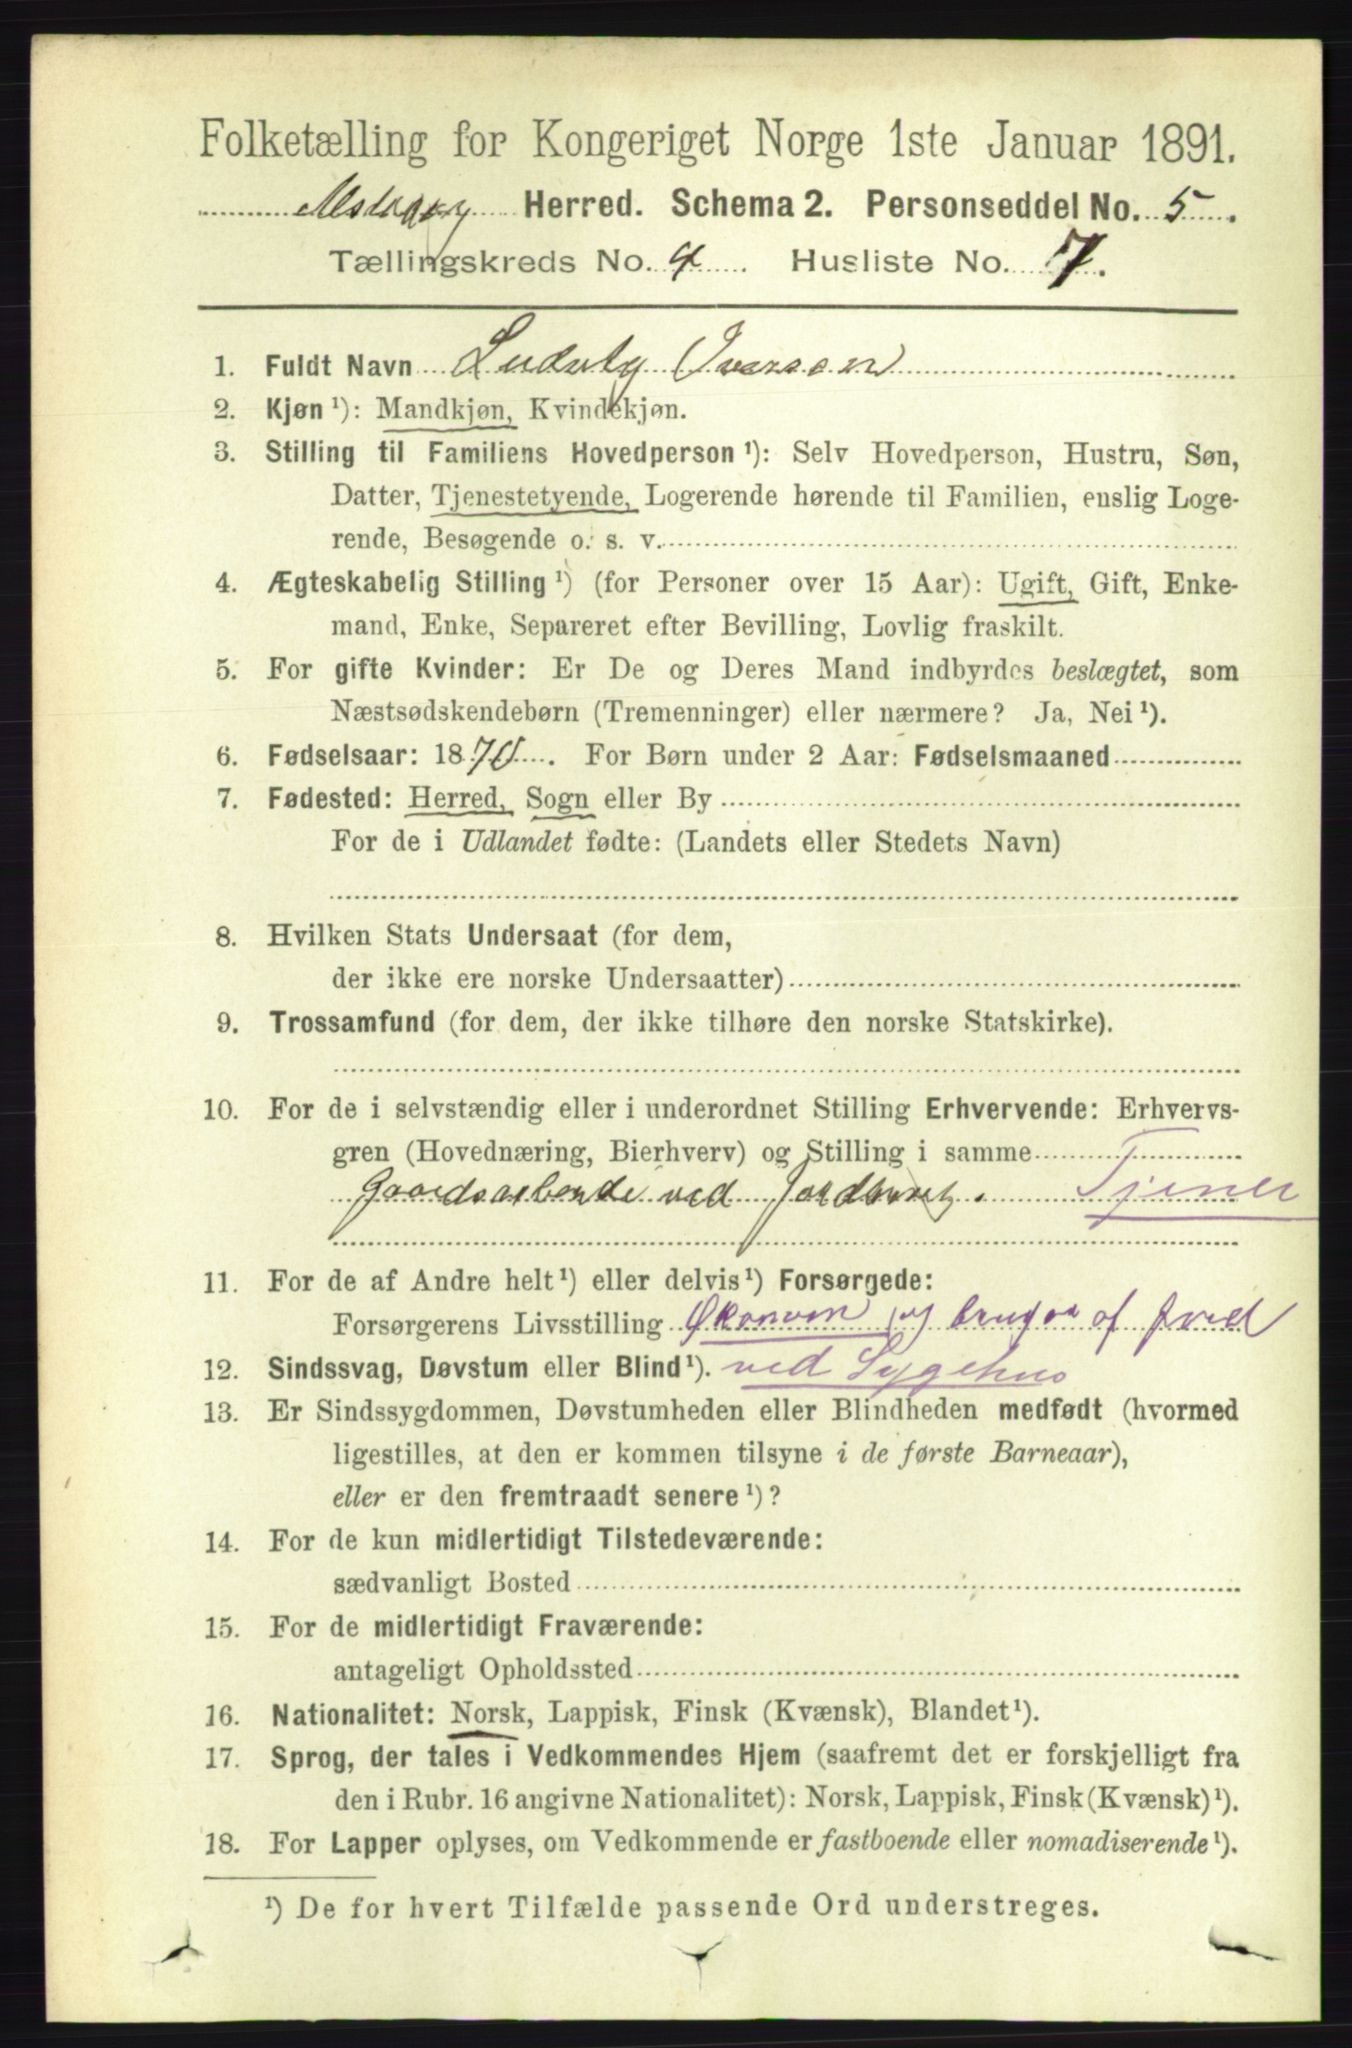 Folketælling for Kongeriget Norge 1ste Januar 1891.
Alstahaug Herred. Schema 2. Personseddel No. 5.
Tællingskreds No. 4. Husliste No. 7.
1. Fuldt Navn Ludvig Iversen
2. Kjøn ¹): Mandkjøn, Kvindekjøn.
3. Stilling til Familiens Hovedperson ¹): Selv Hovedperson, Hustru, Søn,
Datter, Tjenestetyende, Logerende hørende til Familien, enslig Loge-
rende, Besøgende o. s. v.
4. Ægteskabelig Stilling ¹) (for Personer over 15 Aar): Ugift, Gift, Enke-
mand, Enke, Separeret efter Bevilling, Lovlig fraskilt.
5. For gifte Kvinder: Er De og Deres Mand indbyrdes beslægtet, som
Næstsødskendebørn (Tremenninger) eller nærmere? Ja, Nei ¹).
6. Fødselsaar: 1870. For Børn under 2 Aar: Fødselsmaaned
7. Fødested: Herred, Sogn eller By
For de i Udlandet fødte: (Landets eller Stedets Navn)
8. Hvilken Stats Undersaat (for dem,
der ikke ere norske Undersaatter)
9. Trossamfund (for dem, der ikke tilhøre den norske Statskirke).
10. For de i selvstændig eller i underordnet Stilling Erhvervende: Erhvervs-
gren (Hovednæring, Bierhverv) og Stilling i samme
Gaardsarbeide ved Jordbrug. Tjener
11. For de af Andre helt ¹) eller delvis ¹) Forsørgede:
Forsørgerens Livsstilling Økonom og bruger af Jord
12. Sindssvag, Døvstum eller Blind ¹). ved Sygehus
13. Er Sindssygdommen, Døvstumheden eller Blindheden medfødt (hvormed
ligestilles, at den er kommen tilsyne i de første Barneaar),
eller er den fremtraadt senere ¹)?
14. For de kun midlertidigt Tilstedeværende:
sædvanligt Bosted
15. For de midlertidigt Fraværende:
antageligt Opholdssted
16. Nationalitet: Norsk, Lappisk, Finsk (Kvænsk), Blandet ¹).
17. Sprog, der tales i Vedkommendes Hjem (saafremt det er forskjelligt fra
den i Rubr. 16 angivne Nationalitet): Norsk, Lappisk, Finsk (Kvænsk) ¹).
18. For Lapper oplyses, om Vedkommende er fastboende eller nomadiserende ¹).
¹) De for hvert Tilfælde passende Ord understreges.